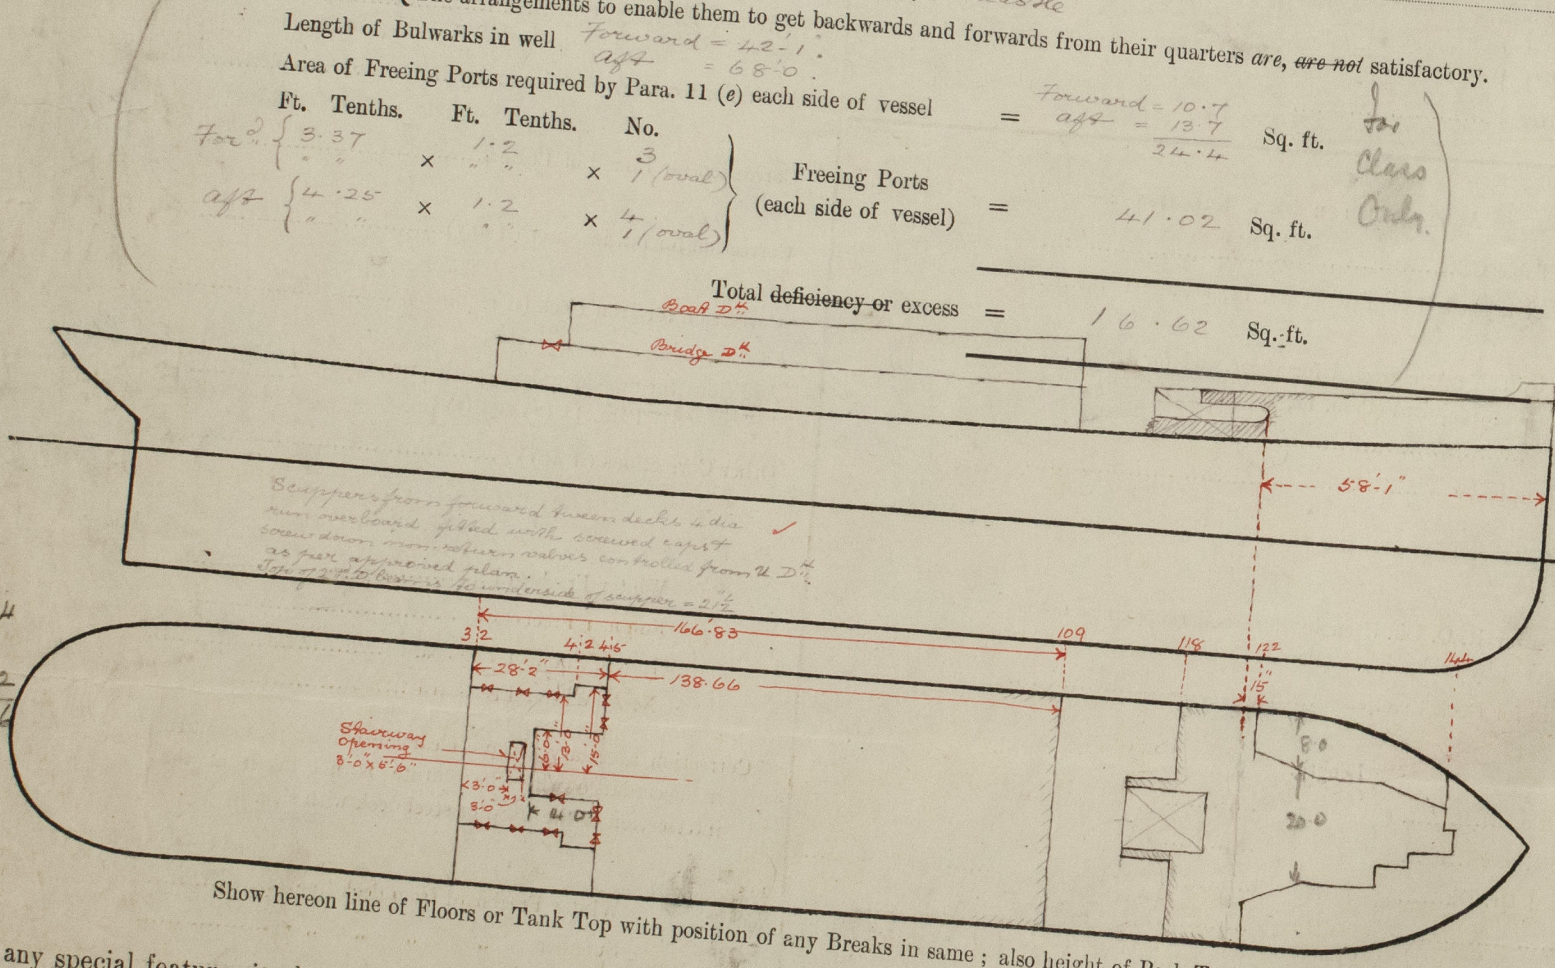 arrangements to enable them to get backwards and forwards from their quarters are, are not satisfactory.
Length of Bulwarks in well Forward = 42'-1".
aft = 68'-0".
Area of Freeing Ports required by Para. 11 (e) each side of vessel = Forward = 10.7
aft = 13.7
24.4 Sq. ft.
for
Class
Only.
Ft. Tenths. Ft. Tenths. No.
For'd { 3.37 × 1.2 × 3
" " " " 1 (oval)
aft { 4.25 × 1.2 × 4
" " " " 1 (oval)
Freeing Ports
(each side of vessel) = 41.02 Sq. ft.
Total deficiency or excess = 16.62 Sq. ft.
Boat Dk
Bridge Dk
58'-1"
Scuppers from forward tween decks 4 dia
run overboard fitted with screwed caps &
screw down non-return valves controlled from U Dk
as per approved plan.
underside of scupper = 21½"
166.83
32 42 45 109 118 122 144
28'-2" 138.66 15"
Stairway
Opening
3'-0" x 5'-6"
13'-0"
15'-0"
3'-0"
3'-0"
4 0
8.0
20.0
Show hereon line of Floors or Tank Top with position of any Breaks in same ; also height of
any special